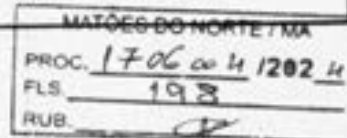 MATÕES DO NORTE / MA
PROC. 1706004 /2024
FLS. 198
RUB.